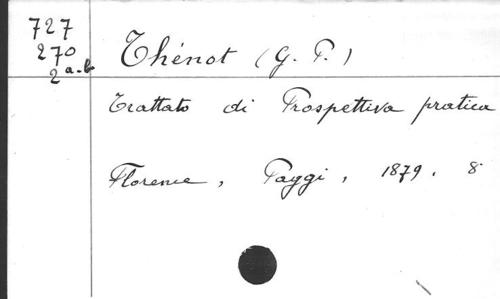 727
270
2 a-b
Thénot (G. P.)
Trattato di Prospettiva pratica
Florence, Paggi, 1879. 8°